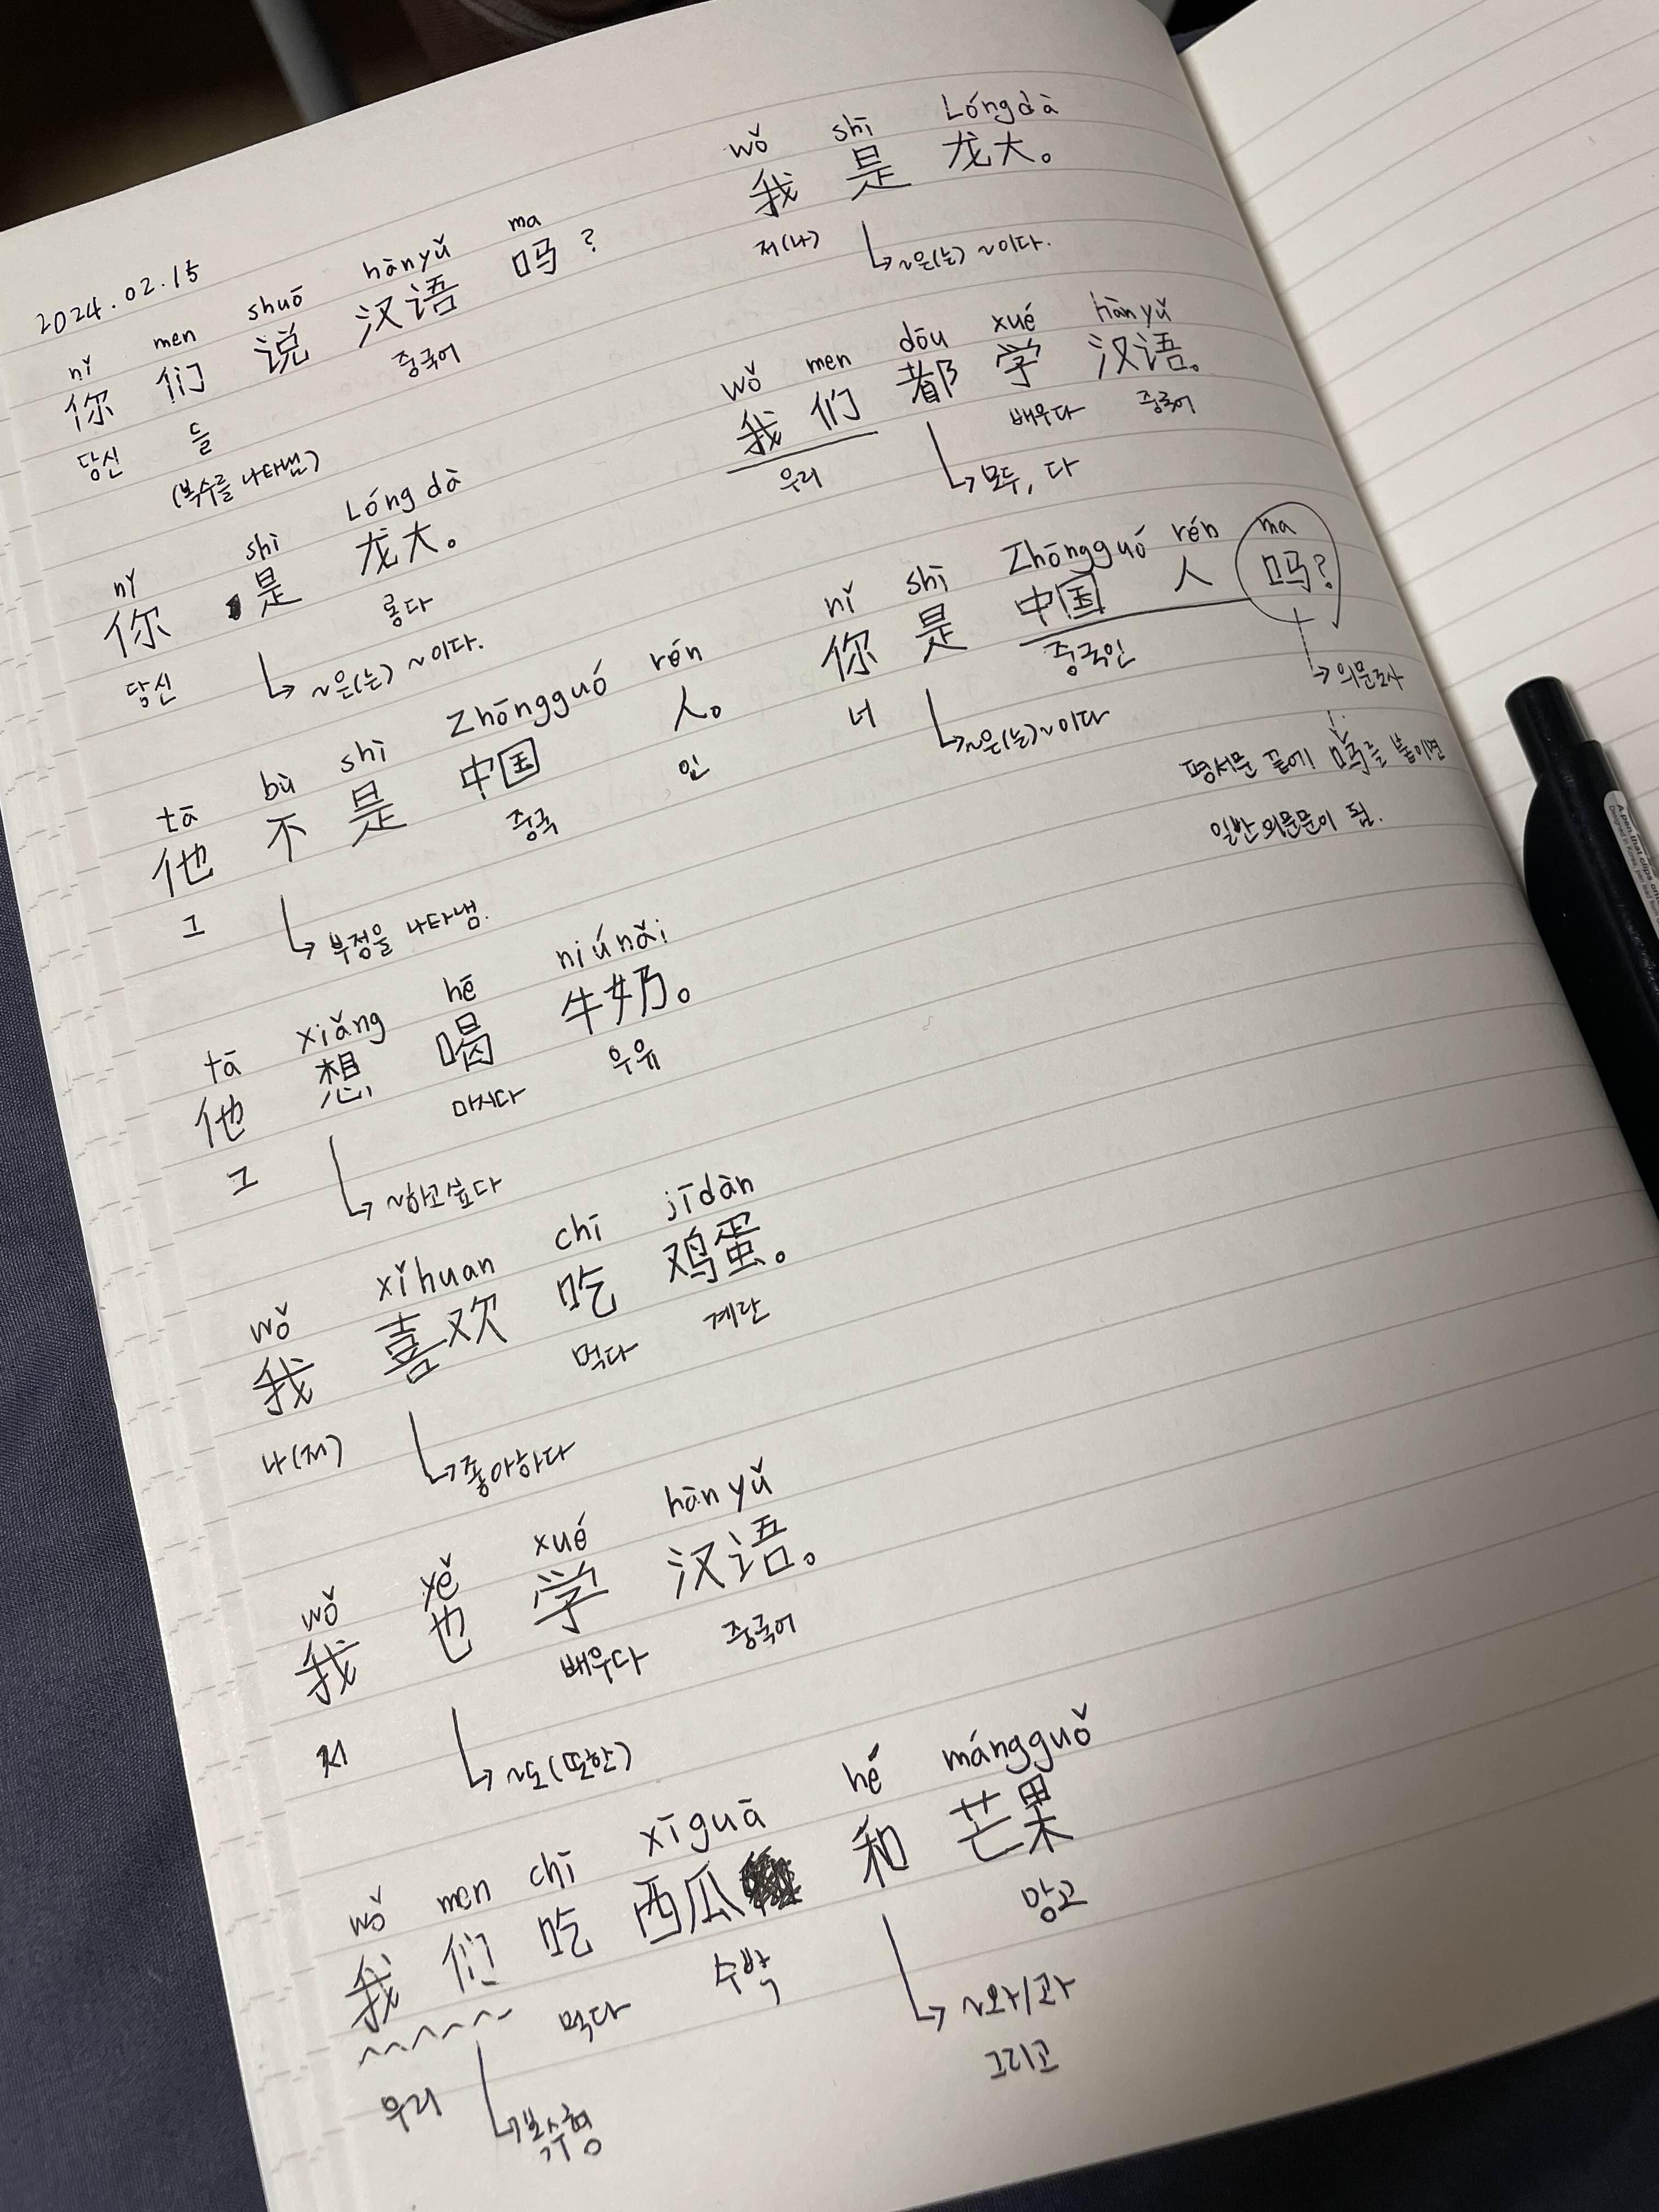 2024.02.15
nǐ men shuō hànyǔ ma
你 们 说 汉语 吗?
당신 들 중국어
(복수를 나타냄)
nǐ shì Lóngdà
你 是 龙大。
당신 롱다
~은(는) ~이다.
tā bù shì Zhōngguó rén
他 不 是 中国 人。
그 중국 인
부정을 나타냄.
tā xiǎng hē niúnǎi
他 想 喝 牛奶。
그 마시다 우유
~하고싶다
wǒ xǐhuan chī jīdàn
我 喜欢 吃 鸡蛋。
나(저) 먹다 계란
좋아하다
wǒ yě xué hànyǔ
我 也 学 汉语。
저 배우다 중국어
~도(또한)
wǒ men chī xīguā hé mángguǒ
我 们 吃 西瓜 和 芒果
우리 먹다 수박 망고
복수형
~와/과
그리고
wǒ shī Lóngdà
我 是 龙大。
저(나) ~은(는) ~이다.
wǒ men dōu xué hànyǔ
我 们 都 学 汉语。
우리 배우다 중국어
모두, 다
nǐ shì Zhōngguó rén ma
你 是 中国 人 吗?
너 중국인
~은(는)~이다
의문조사
평서문 끝에 吗를 붙이면
일반의문문이 됨.
A pen that clips on
Designed in Korea,